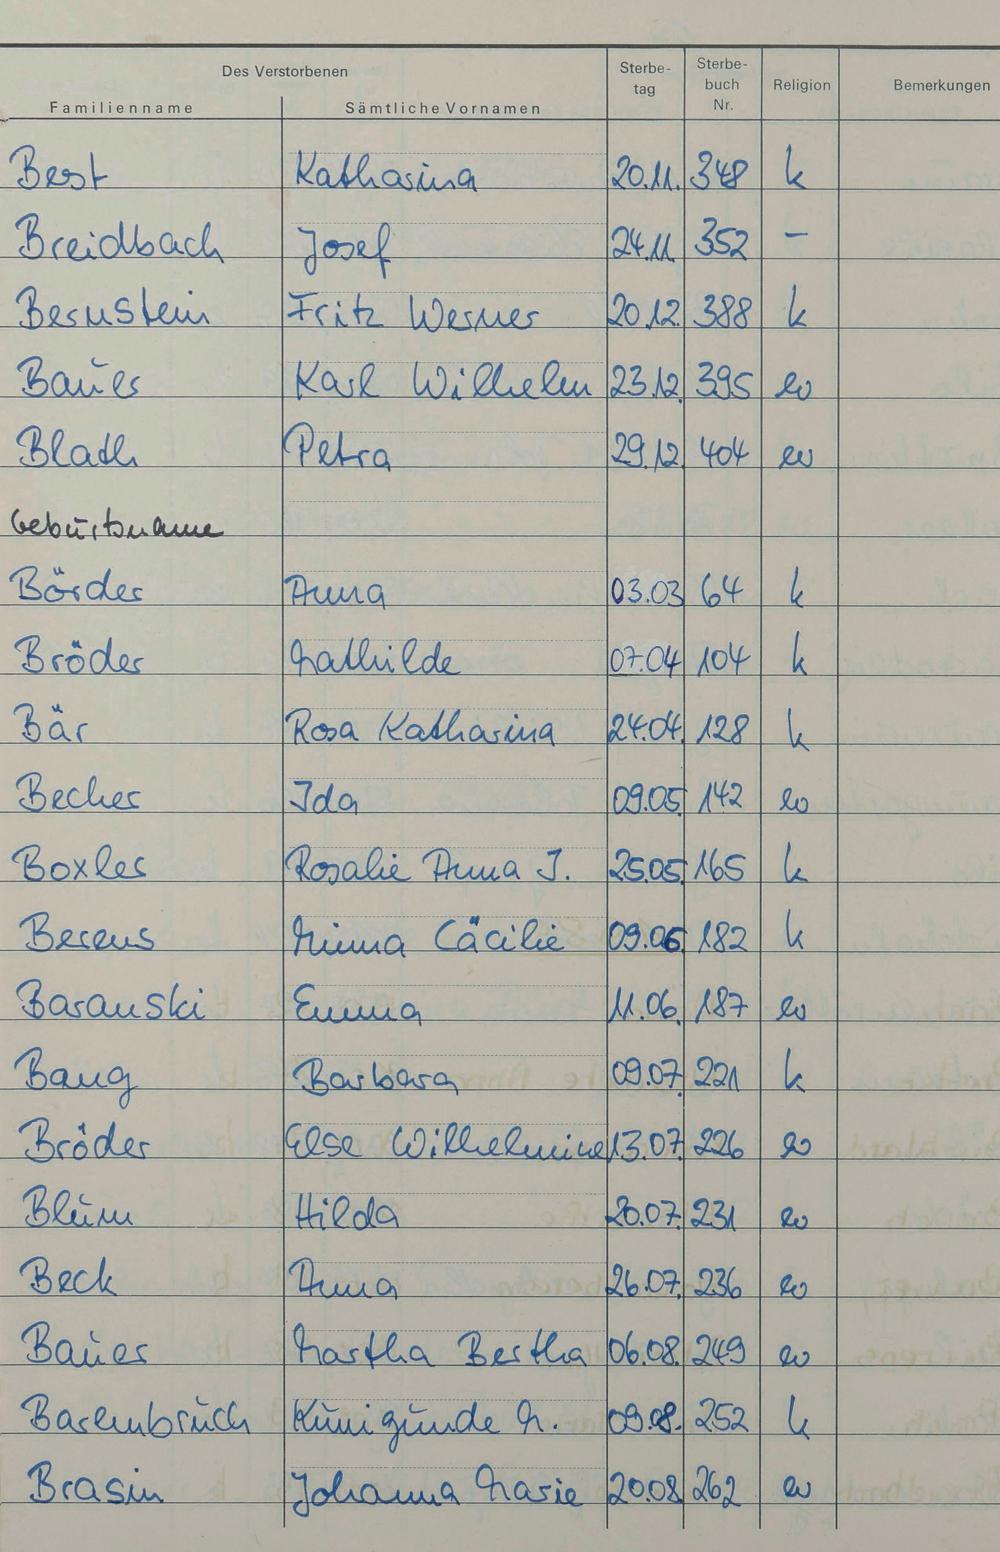 Des Verstorbenen
Familienname Sämtliche Vornamen Sterbe-tag Sterbe-buch Nr. Religion Bemerkungen
Best Katharina 20.11. 348 k
Breidbach Josef 24.11 352 –
Bernstein Fritz Werner 20.12. 388 k
Bauer Karl Wilhelm 23.12. 395 ev
Blath Petra 29.12 404 ev
Geburtsname
Börder Anna 03.03 64 k
Bröder Mathilde 07.04 104 k
Bär Rosa Katharina 24.04. 128 k
Becher Ida 09.05 142 ev
Boxler Rosalie Anna J. 25.05 165 k
Berens Minna Cäcilie 09.06 182 k
Baranski Emma 11.06. 187 ev
Baug Barbara 09.07. 221 k
Bröder Else Wilhelmine 13.07. 226 ev
Blum Hilda 20.07. 231 ev
Beck Anna 26.07. 236 ev
Bauer Martha Bertha 06.08. 249 ev
Barembruch Kunigunde M. 09.08. 252 k
Brasin Johanna Marie 20.08 262 ev